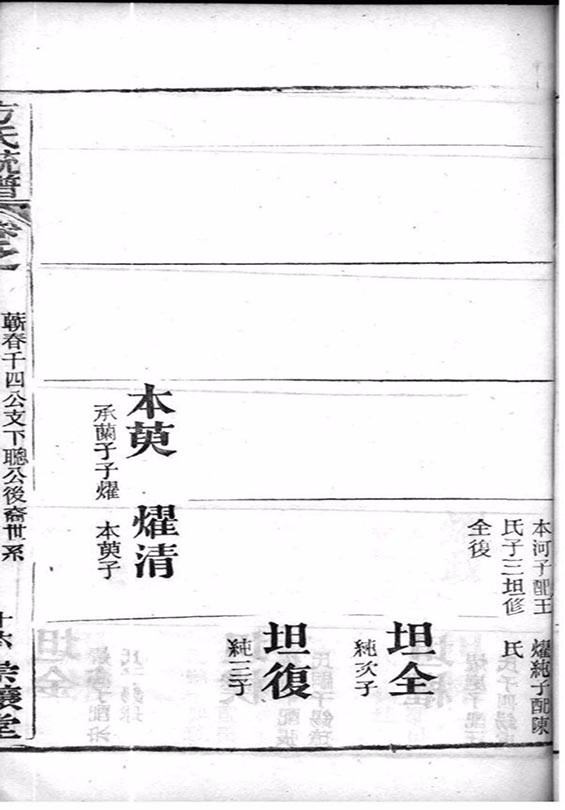 本河子配王
氏子三坦修
全復
燿純子配陳
氏
坦全
純次子
坦復
純三子
燿清
本萸子
本萸
承蘭子子燿
方氏統譜
卷之一
蘄春千四公支下聰公後裔世系
十六